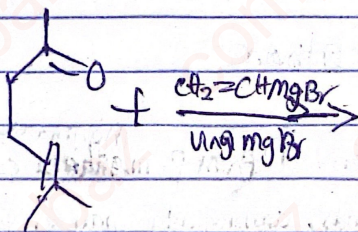 O
+
CH₂=CHMgBr
Vingl mgBr